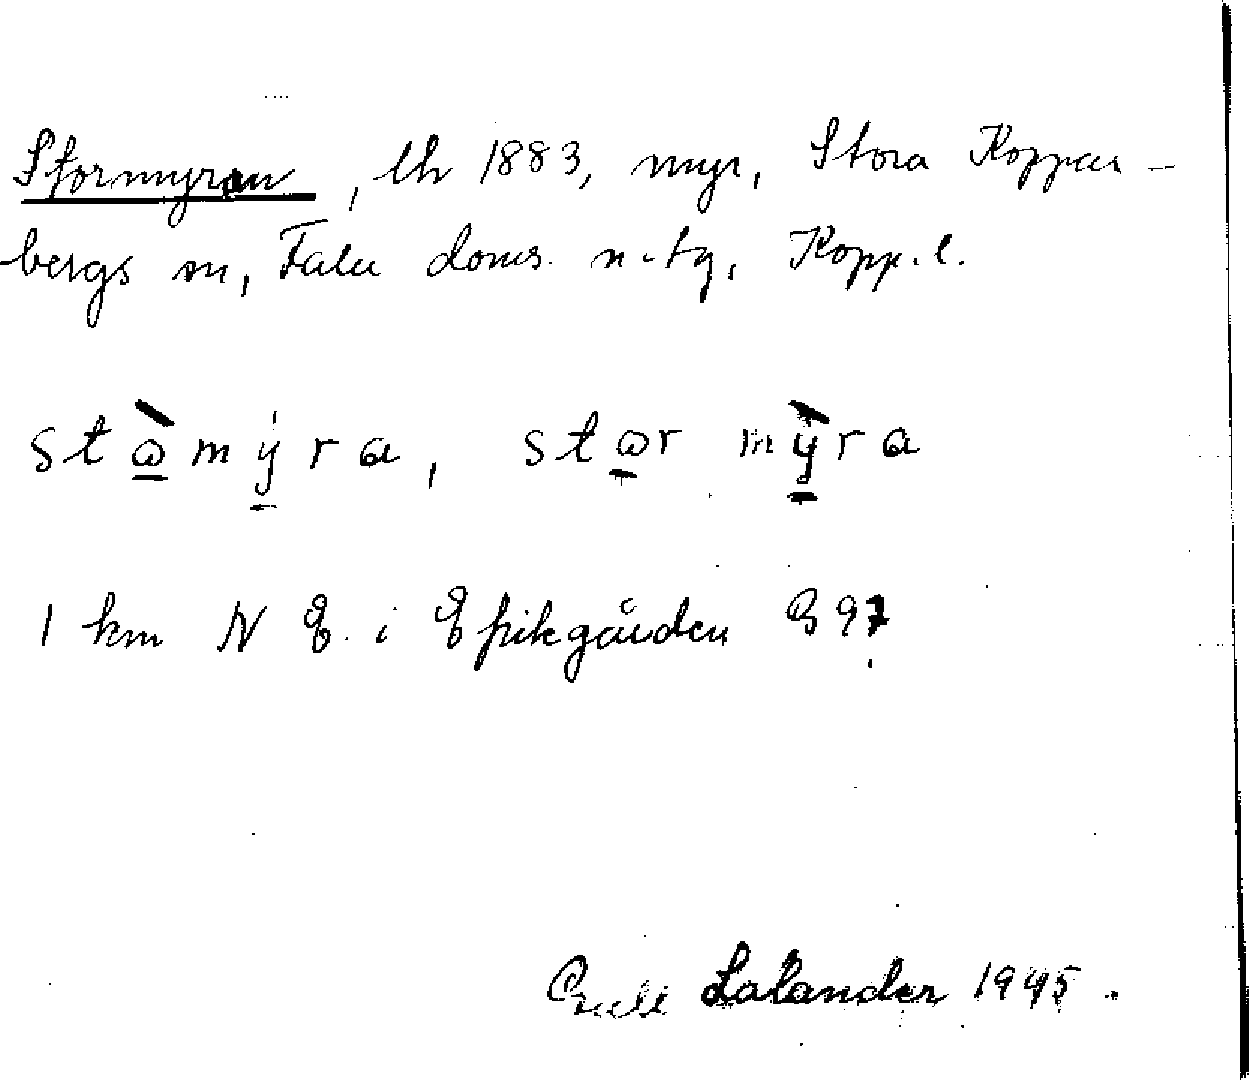 Stormyran, lh 1883, myr, Stora Koppar-
bergs sn, Falu doms. n. tg, Kopp. l.
stὼmy̠ra, stω̠r mỳ̠ra
1 km N E. i Epikgården B 97
Lalander 1945.